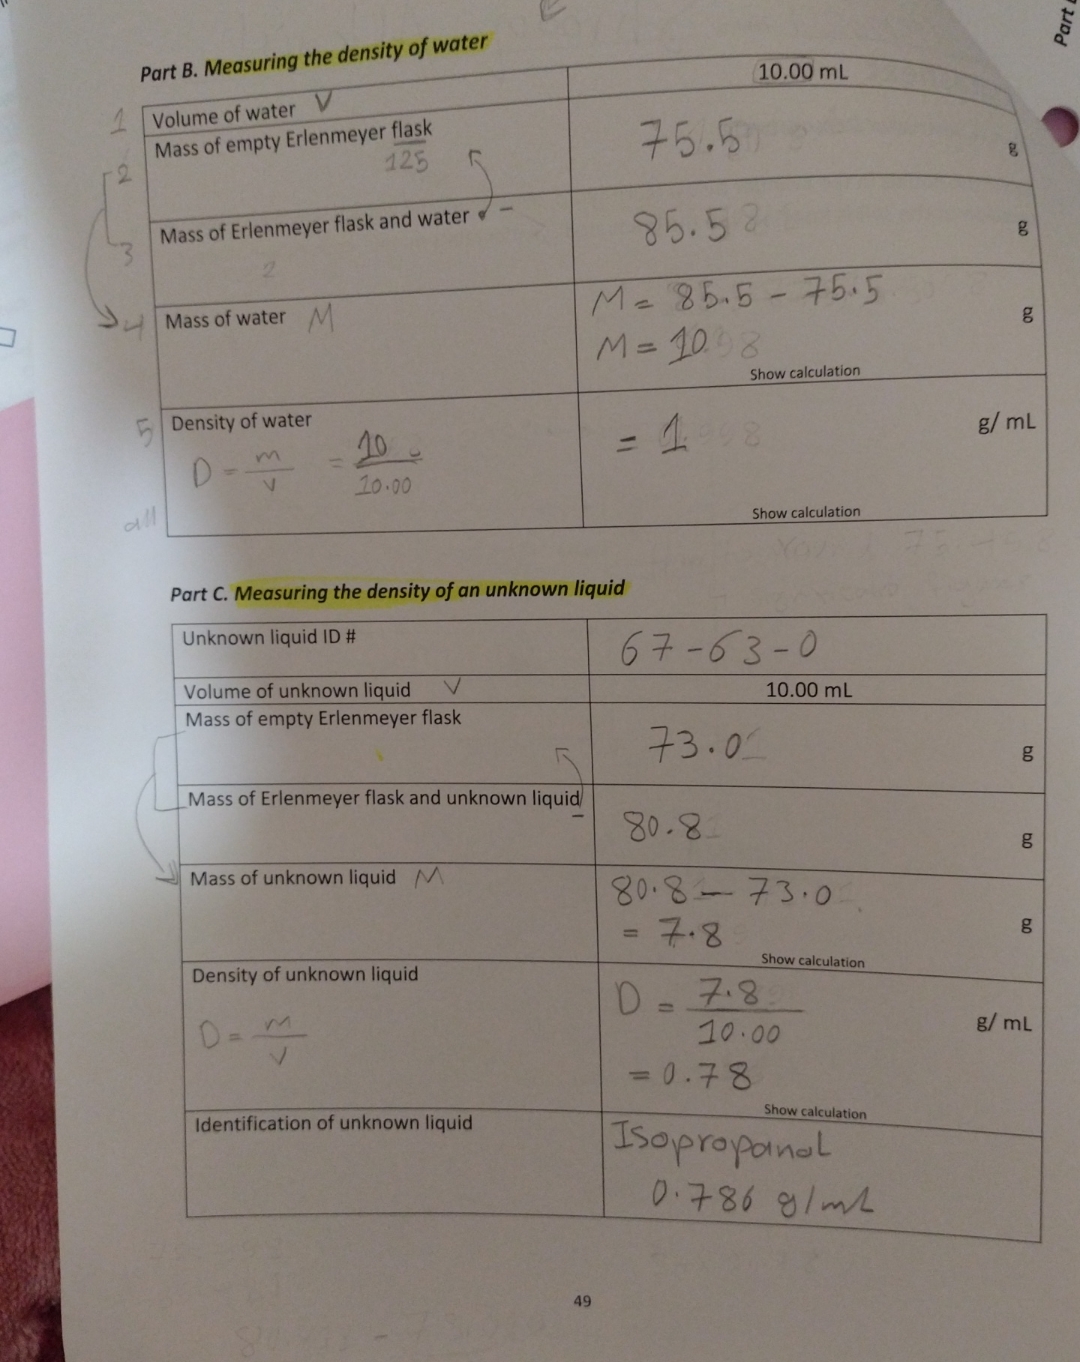 Part
Part B. Measuring the density of water
1 Volume of water V 10.00 mL
2 Mass of empty Erlenmeyer flask 75.5 g
125
3 Mass of Erlenmeyer flask and water - 85.5 g
2
4 Mass of water M M = 85.5 - 75.5 g
M = 10
Show calculation
5 Density of water = 1 g/ mL
D = m/v = 10/10.00
all
Show calculation
Part C. Measuring the density of an unknown liquid
Unknown liquid ID # 67-63-0
Volume of unknown liquid V 10.00 mL
Mass of empty Erlenmeyer flask 73.0 g
Mass of Erlenmeyer flask and unknown liquid - 80.8 g
Mass of unknown liquid M 80.8 — 73.0 g
= 7.8
Show calculation
Density of unknown liquid D = 7.8/10.00 g/ mL
D = m/v = 0.78
Show calculation
Identification of unknown liquid Isopropanol
0.786 g/mL
49